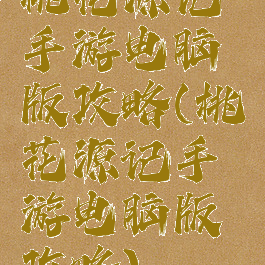 桃花源记
手游电脑
版攻略(桃
花源记手
游电脑版
攻略)